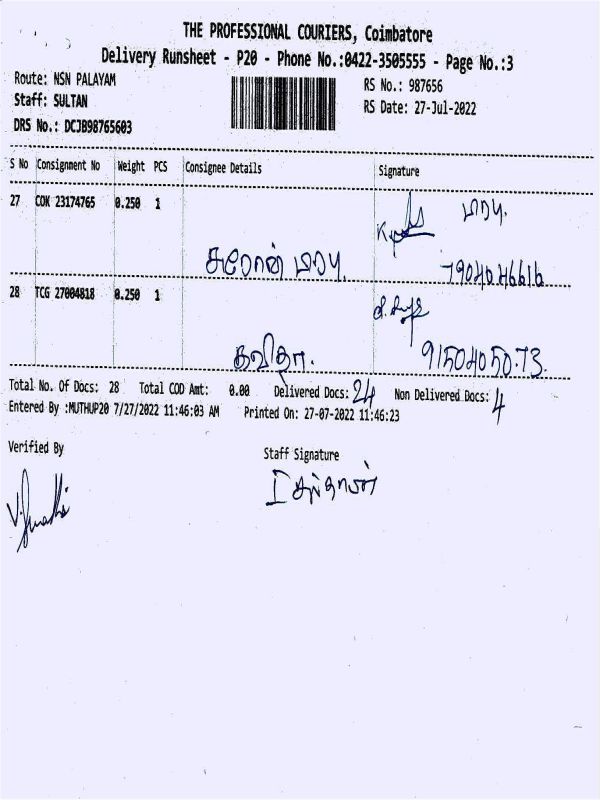 THE PROFESSIONAL COURIERS, Coimbatore
Delivery Runsheet - P20 - Phone No.:0422-3505555 - Page No.:3
Route: NSN PALAYAM
RS No.: 987656
Staff: SULTAN
RS Date: 27-Jul-2022
DRS No.: DCJB98765603
S No Consignment No Weight PCS Consignee Details Signature
27 COK 23174765 0.250 1
28 TCG 27004818 0.250 1
கவிதா. 9150405073.
Total No. Of Docs: 28 Total COD Amt: 0.00 Delivered Docs: 24 Non Delivered Docs: 4
Entered By :MUTHUP20 7/27/2022 11:46:03 AM Printed On: 27-07-2022 11:46:23
Verified By
Staff Signature